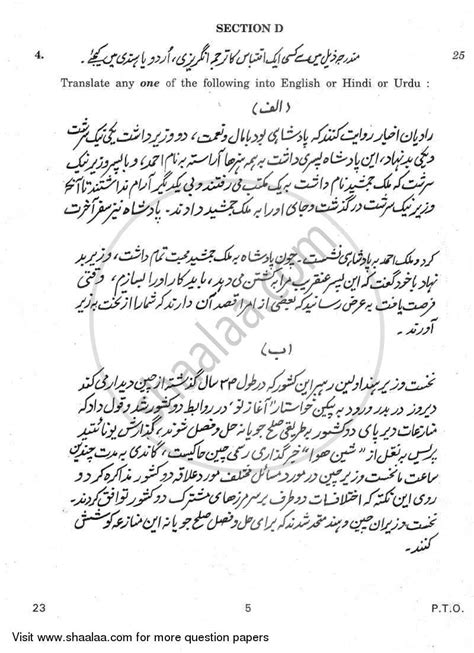 SECTION D
4. مندرجہ ذیل میں سے کسی ایک اقتباس کا ترجمہ انگریزی، اُردو یا ہندی میں کیجئے۔ 25
Translate any one of the following into English or Hindi or Urdu :
(الف)
راویان اخبار روایت کنند کہ پادشاہی بود با مال و نعمت، دو وزیر داشت یکی نیک سرشت
و یکی بد نہاد، این پادشاہ پسری داشت بہ ہمہ ہنرہا آراستہ بہ نام احمد، و با پسر وزیر نیک
سرشت کہ ملک جمشید نام داشت بہ یک مکتب می رفتند و بی یکدیگر آرام نداشتند تا آنچ
وزیر نیک سرشت در گذشت و جای او را بہ ملک جمشید دادند۔ پادشاہ نیز سفر آخرت
کرد و ملک احمد بہ پادشاہی نشست۔ چون پادشاہ بہ ملک جمشید محبت تمام داشت، وزیر بد
نہاد با خود گفت کہ این پسر عنقریب مرا بکشتن می دہد، باید کار او را بسازم، وقتی
فرصت یافت بہ عرض رسانید کہ بعضی از امرا قصد آن دارند کہ شما را از تخت بہ زیر
آورند۔
(ب)
نخست وزیر ہند اولین رہبر این کشور کہ در طول ۳۴ سال گذشتہ از چین دیدار می کند
دیروز در بدر ورود بہ پکین خواستار "آغاز نو" در روابط دو کشور شد و قول داد کہ
منازعات دیر پای دو کشور بہ طریقی صلح جویانہ حل و فصل شوند، گذارش یونائیتد
پریس بہ نقل از "شین ھوا" خبرگذاری رسمی چین حاکیست، گاندی بہ مدت چندین
ساعت با نخست وزیر چین در مورد مسائل مختلف مورد علاقہ دو کشور مذاکرہ کرد دو
روی این نکتہ کہ اختلافات دو طرف بر سر مرزھای مشترک دو کشور توافق کردند۔
نخست وزیران چین و ہند متحد شدند کہ برای حل و فصل صلح جویانہ این منازعہ کوشش
کنند۔
shaalaa.com
23 5 P.T.O.
Visit www.shaalaa.com for more question papers